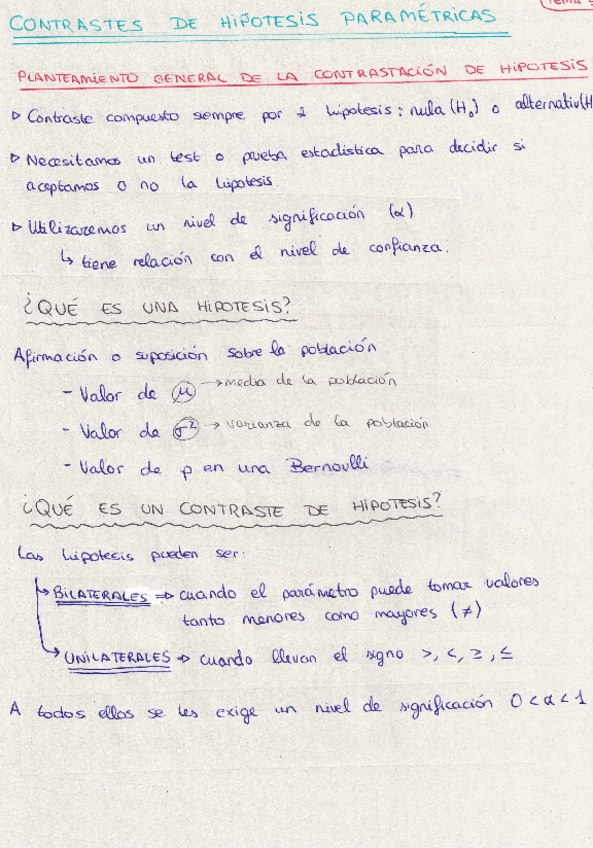 CONTRASTES DE HIPÓTESIS PARAMÉTRICAS
PLANTEAMIENTO GENERAL DE LA CONTRASTACIÓN DE HIPOTESIS
▷ Contraste compuesto siempre por 2 hipotesis: nula (H₀) o alternativ(H
▷ Necesitamos un test o prueba estadística para decidir si
aceptamos o no la hipotesis
▷ Utilizaremos un nivel de significación (α)
↳ tiene relación con el nivel de confianza.
¿QUÉ ES UNA HIPOTESIS?
Afirmación o suposición sobre la población
- Valor de μ → media de la población
- Valor de σ² → varianza de la población
- Valor de p en una Bernoulli
¿QUÉ ES UN CONTRASTE DE HIPOTESIS?
Las hipotesis pueden ser:
↳ BILATERALES ⇒ cuando el parámetro puede tomar valores
tanto menores como mayores (≠)
↳ UNILATERALES ⇒ cuando llevan el signo >, <, ≥, ≤
A todos ellos se les exige un nivel de significación 0 < α < 1